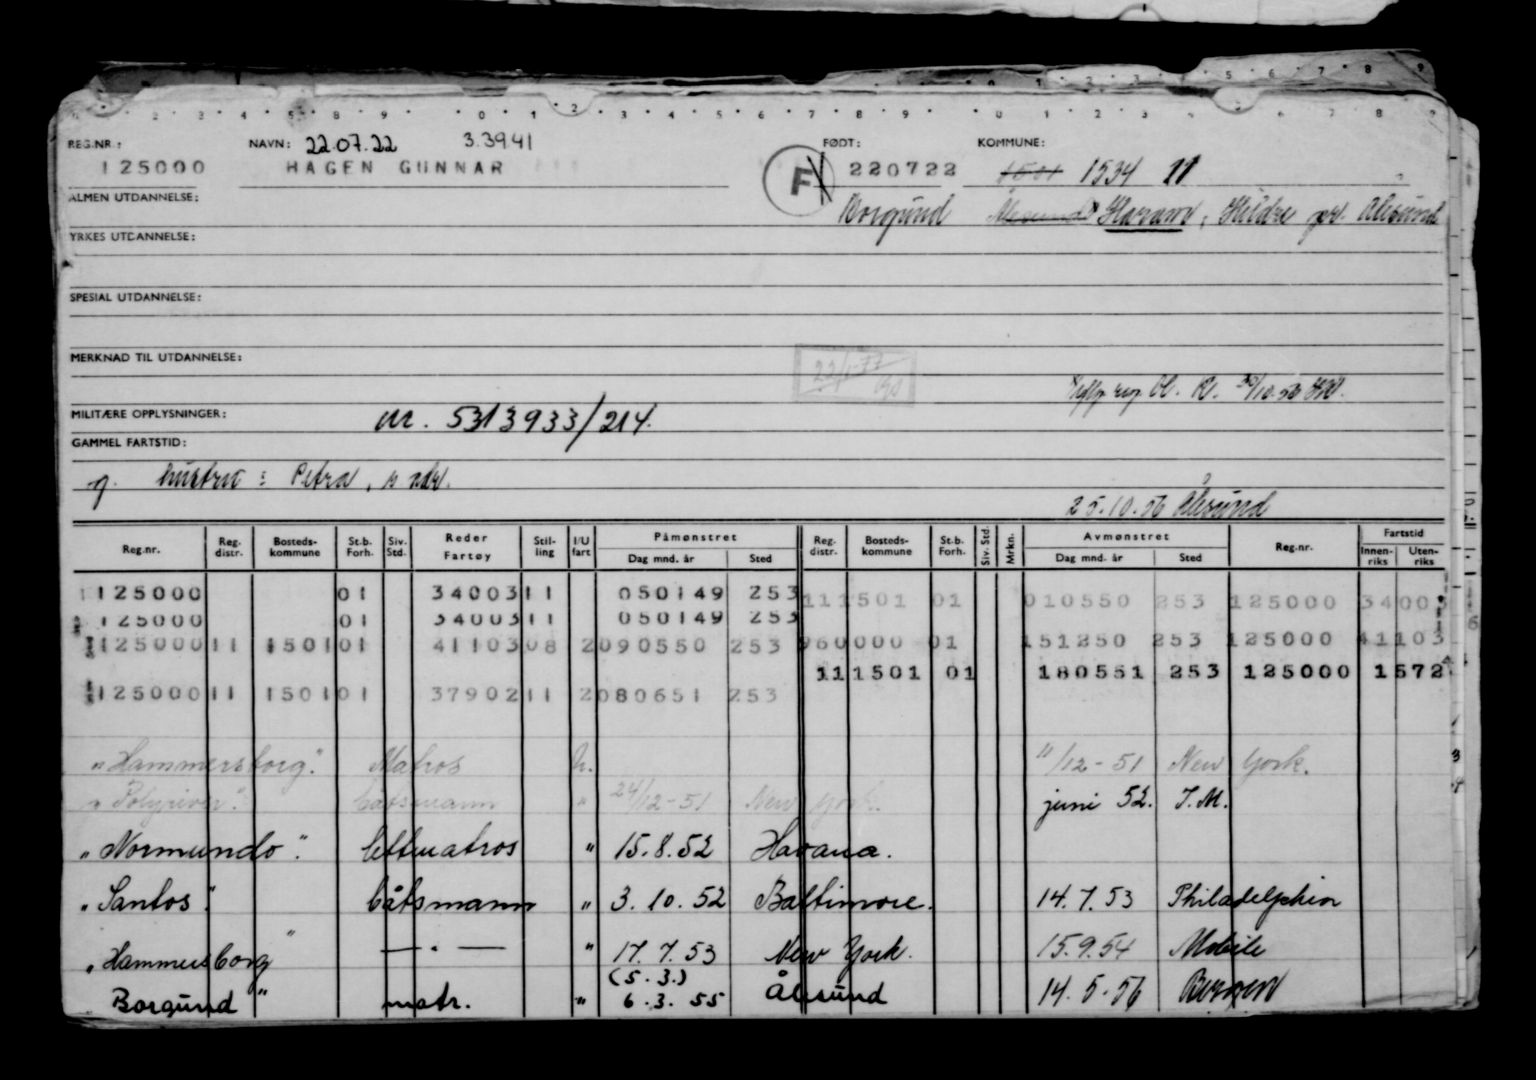 REG.NR.: NAVN: 22.07.22 3.3941 FØDT: KOMMUNE:
125000 HAGEN GUNNAR F 220722 1501 1534 11
ALMEN UTDANNELSE: Borgund Ålesund Haram, Hildre pr. Ålesund
YRKES UTDANNELSE:
SPESIAL UTDANNELSE:
MERKNAD TIL UTDANNELSE:
30/10.56
MILITÆRE OPPLYSNINGER: nr. 5313933/214.
GAMMEL FARTSTID:
g. hustru: Petra, s adr.
25.10.56 Ålesund
Reg.nr. Reg. distr. Bosteds-kommune St.b. Forh. Siv. Std. Reder Fartøy Stil-ling I/U fart Påmønstret Dag mnd. år Sted Reg. distr. Bosteds-kommune St.b. Forh. Siv. Std. Mrkn. Avmønstret Dag mnd. år Sted Reg.nr. Fartstid Innen-riks Uten-riks
125000 01 34003 11 050149 253 111501 01 010550 253 125000 34003
125000 01 34003 11 050149 253
125000 11 1501 01 41103 08 2 090550 253 960000 01 151250 253 125000 41103
111501 01 180551 253 125000 1572
125000 11 1501 01 37902 11 2 080651 253
"Hammersborg". Matros U. 11/12-51 New York.
"Polyriver". båtsmann " 24/12-51 New York. juni 52. T.M.
"Normundo". lettmatros " 15.8.52 Havana.
"Santos". båtsmann " 3.10.52 Baltimore. 14.7.53 Philadelphia
"Hammersborg" — " — " 17.7.53 New York. 15.9.54 Mobile
(5.3.)
Borgund" matr. " 6.3.55 Ålesund 14.5.56